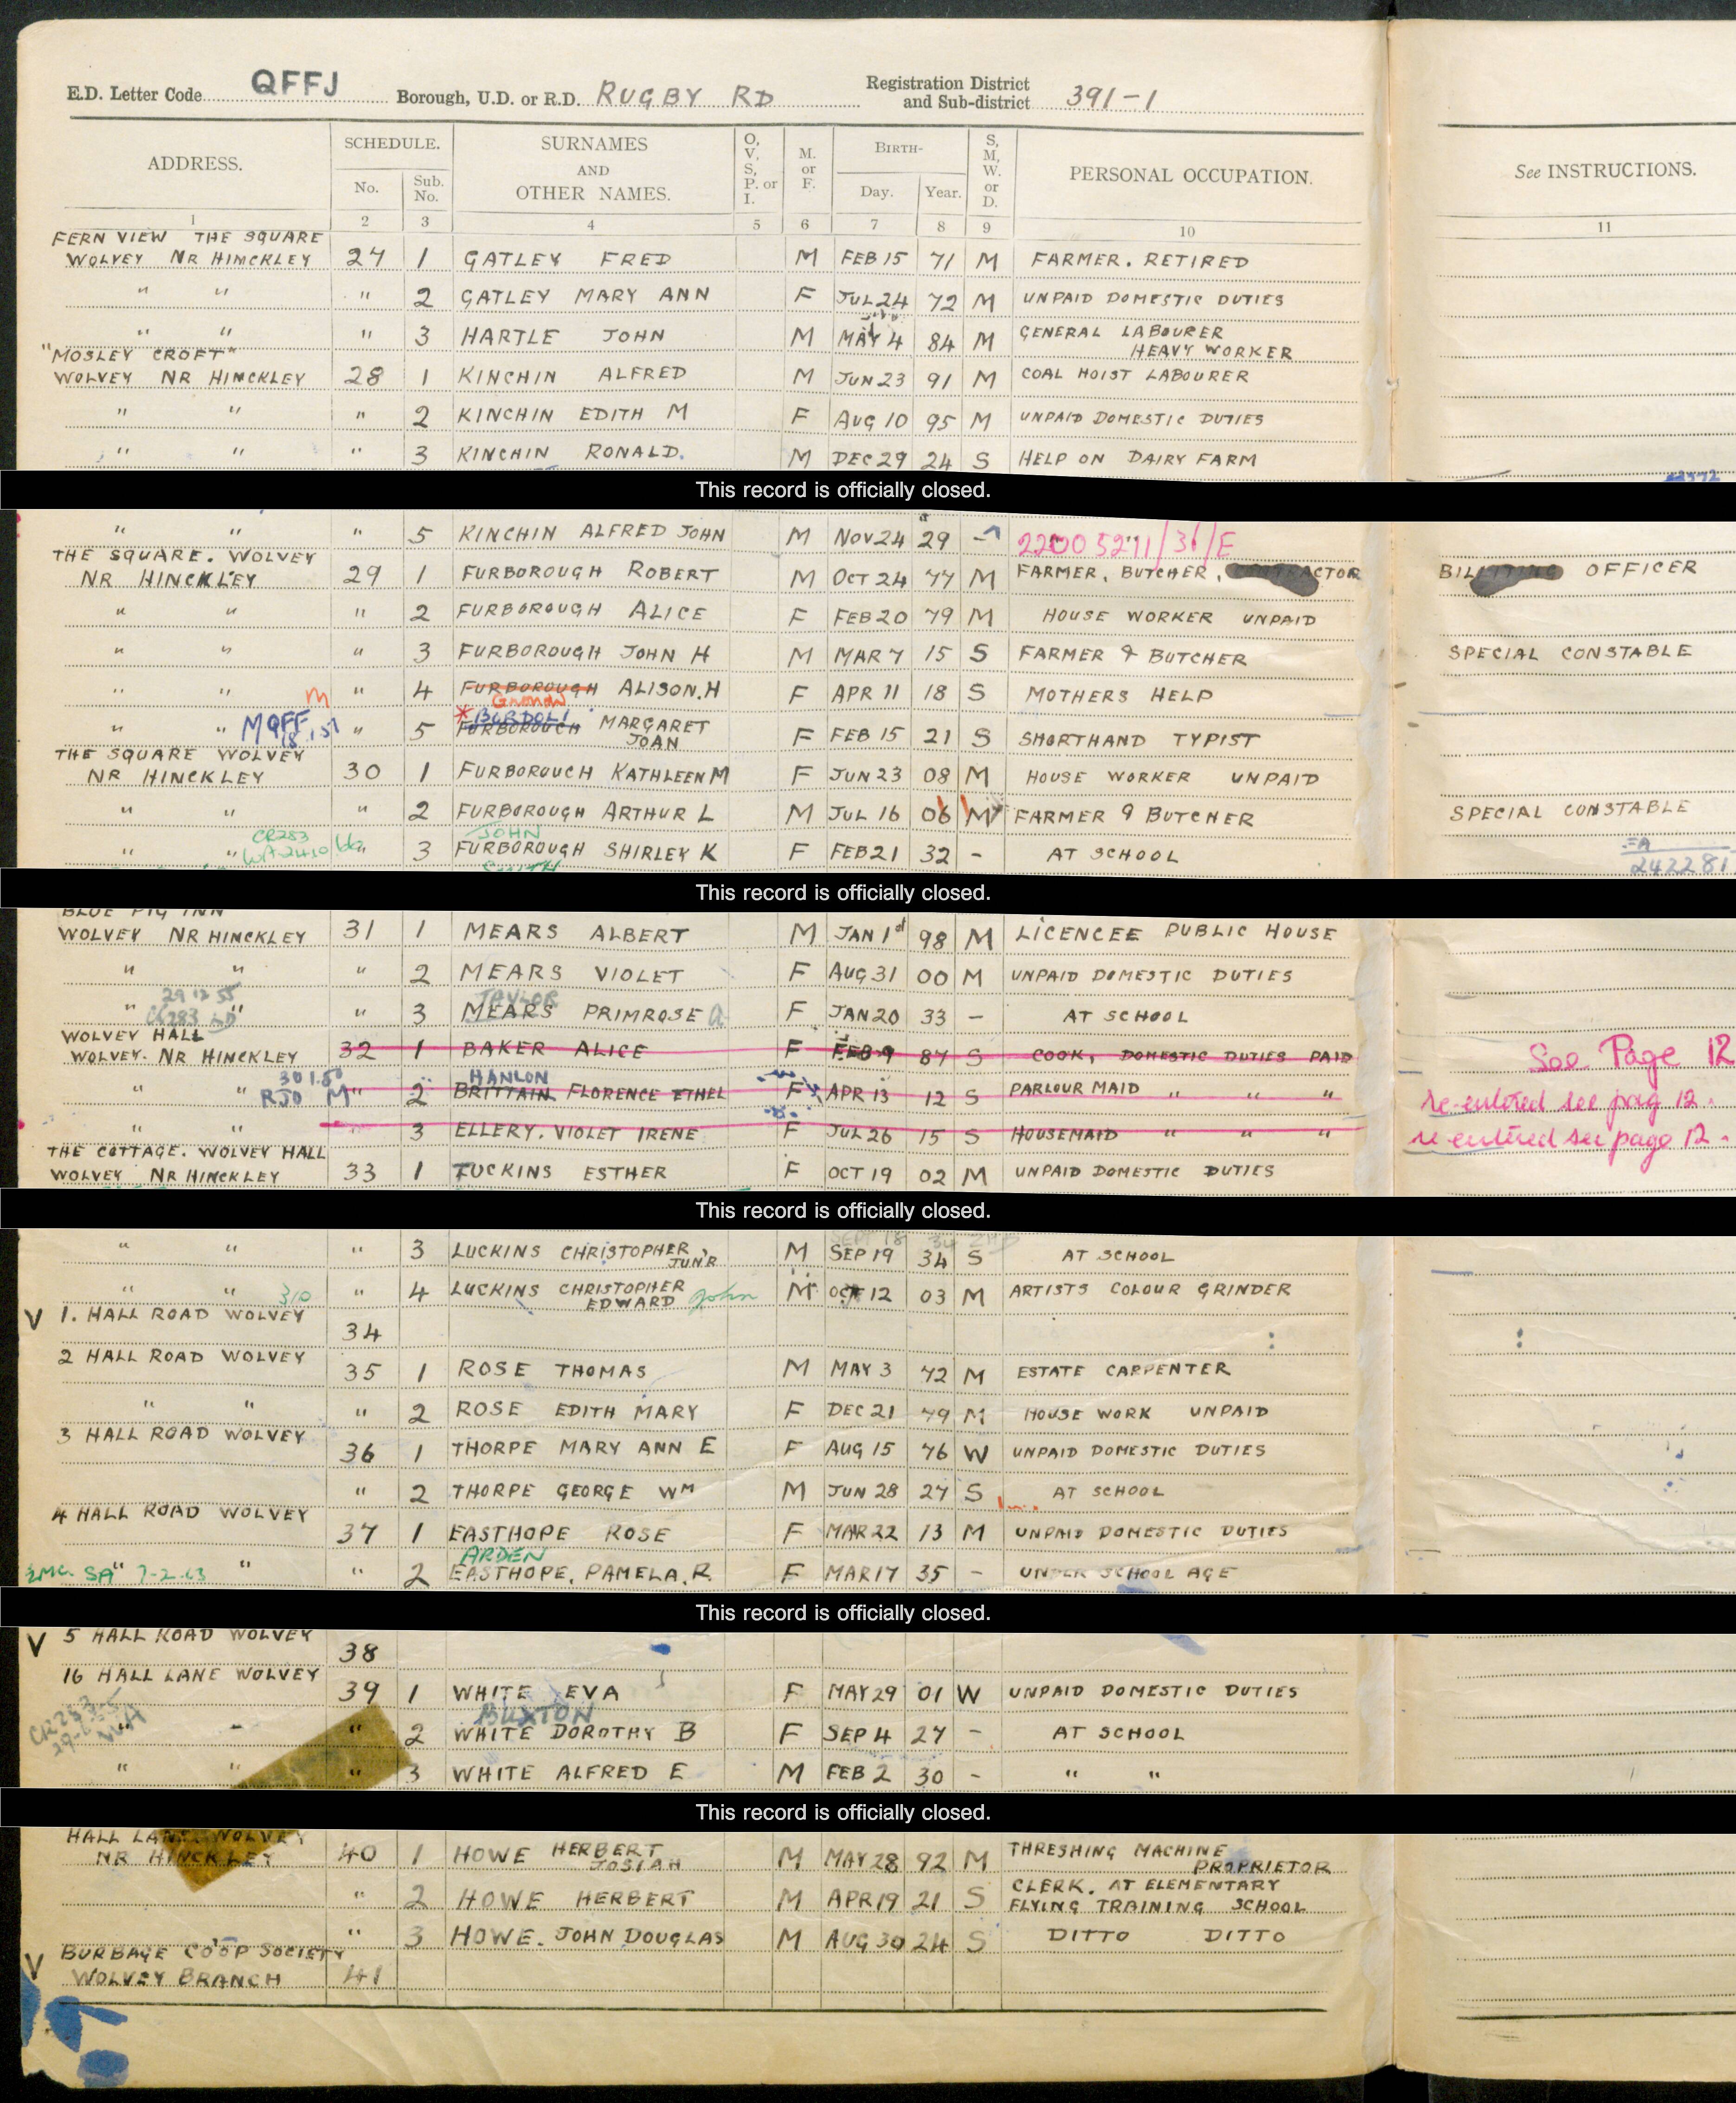 E.D. Letter Code QFFJ Borough, U.D. or R.D. RUGBY RD Registration District and Sub-district 391-1
ADDRESS. SCHEDULE. No. Sub. No. SURNAMES AND OTHER NAMES. O, V, S, P. or I. M. or F. BIRTH- Day. Year. S, M, W. or D. PERSONAL OCCUPATION. See INSTRUCTIONS.
1 2 3 4 5 6 7 8 9 10 11
FERN VIEW THE SQUARE
WOLVEY NR HINCKLEY 24 1 GATLEY FRED M FEB 15 71 M FARMER. RETIRED
" " " 2 GATLEY MARY ANN F JUL 24 72 M UNPAID DOMESTIC DUTIES
" " " 3 HARTLE JOHN M MAY 4 84 M GENERAL LABOURER
HEAVY WORKER
"MOSLEY CROFT"
WOLVEY NR HINCKLEY 28 1 KINCHIN ALFRED M JUN 23 91 M COAL HOIST LABOURER
" " " 2 KINCHIN EDITH M F AUG 10 95 M UNPAID DOMESTIC DUTIES
" " " 3 KINCHIN RONALD. M DEC 29 24 S HELP ON DAIRY FARM
This record is officially closed.
" " " 5 KINCHIN ALFRED JOHN M NOV 24 29 -
THE SQUARE. WOLVEY
NR HINCKLEY 29 1 FURBOROUGH ROBERT M OCT 24 77 M FARMER, BUTCHER, OFFICER
" " " 2 FURBOROUGH ALICE F FEB 20 79 M HOUSE WORKER UNPAID
" " " 3 FURBOROUGH JOHN H M MAR 7 15 S FARMER & BUTCHER SPECIAL CONSTABLE
" " m " 4 FURBOROUGH ALISON.H F APR 11 18 S MOTHERS HELP
" " MQFF " 5 FURBOROUGH MARGARET JOAN F FEB 15 21 S SHORTHAND TYPIST
THE SQUARE WOLVEY
NR HINCKLEY 30 1 FURBOROUGH KATHLEEN M F JUN 23 08 M HOUSE WORKER UNPAID
" " " 2 FURBOROUGH ARTHUR L M JUL 16 06 M FARMER & BUTCHER SPECIAL CONSTABLE
CR283 JOHN
" " " 3 FURBOROUGH SHIRLEY K F FEB 21 32 - AT SCHOOL
SMITH
This record is officially closed.
BLUE PIG INN
WOLVEY NR HINCKLEY 31 1 MEARS ALBERT M JAN 1st 98 M LICENCEE PUBLIC HOUSE
" " " 2 MEARS VIOLET F AUG 31 00 M UNPAID DOMESTIC DUTIES
29 12 55 TAYLOR
" CR283 " " 3 MEARS PRIMROSE a F JAN 20 33 - AT SCHOOL
WOLVEY HALL
WOLVEY. NR HINCKLEY 32 1 BAKER ALICE F FEB 9 87 S COOK, DOMESTIC DUTIES PAID See Page 12
HANLON
" " RJD M " 2 BRITTAIN FLORENCE ETHEL F APR 13 12 S PARLOUR MAID " " " re-entered see pag 12.
" " 3 ELLERY. VIOLET IRENE F JUL 26 15 S HOUSEMAID " " " re entered see page 12.
THE COTTAGE. WOLVEY HALL
WOLVEY NR HINCKLEY 33 1 FUCKINS ESTHER F OCT 19 02 M UNPAID DOMESTIC DUTIES
This record is officially closed.
" " " 3 LUCKINS CHRISTOPHER JUNR M SEP 19 34 S AT SCHOOL
" " " 4 LUCKINS CHRISTOPHER EDWARD John M OCT 12 03 M ARTISTS COLOUR GRINDER
V 1. HALL ROAD WOLVEY
34
2 HALL ROAD WOLVEY
35 1 ROSE THOMAS M MAY 3 72 M ESTATE CARPENTER
" " " 2 ROSE EDITH MARY F DEC 21 79 M HOUSE WORK UNPAID
3 HALL ROAD WOLVEY
36 1 THORPE MARY ANN E F AUG 15 76 W UNPAID DOMESTIC DUTIES
" 2 THORPE GEORGE WM M JUN 28 27 S AT SCHOOL
4 HALL ROAD WOLVEY
37 1 EASTHOPE ROSE F MAR 22 13 M UNPAID DOMESTIC DUTIES
ARDEN
SA " " " 2 EASTHOPE, PAMELA.R. F MAR 17 35 - UNDER SCHOOL AGE
This record is officially closed.
V 5 HALL ROAD WOLVEY
38
16 HALL LANE WOLVEY
39 1 WHITE EVA F MAY 29 01 W UNPAID DOMESTIC DUTIES
BUXTON
" 2 WHITE DOROTHY B F SEP 4 27 - AT SCHOOL
" " " 3 WHITE ALFRED E M FEB 2 30 - " "
This record is officially closed.
HALL LANE WOLVEY
NR HINCKLEY 40 1 HOWE HERBERT JOSIAH M MAY 28 92 M THRESHING MACHINE
PROPRIETOR
" 2 HOWE HERBERT M APR 19 21 S CLERK. AT ELEMENTARY
FLYING TRAINING SCHOOL
" 3 HOWE. JOHN DOUGLAS M AUG 30 24 S DITTO DITTO
BURBAGE CO'OP SOCIETY
V WOLVEY BRANCH 41